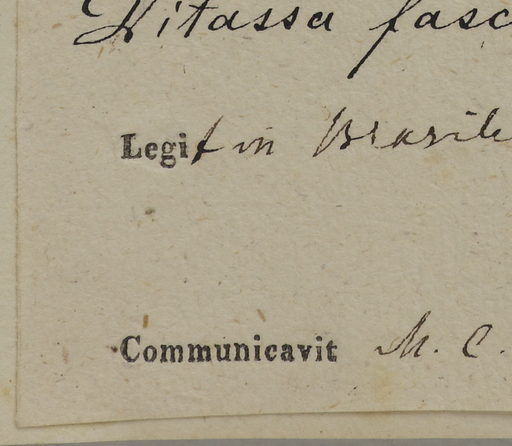 Vitassa fasc
Legit in Brasile
Communicavit M. C.